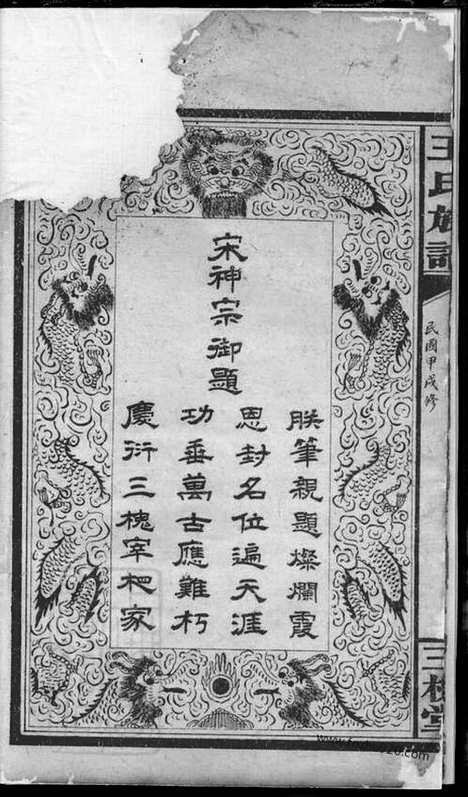 宋神宗御題
朕筆親題燦爛霞
恩封名位遍天涯
功垂萬古應難朽
慶衍三槐宰杷家
王氏族譜
民國甲戌修
三槐堂